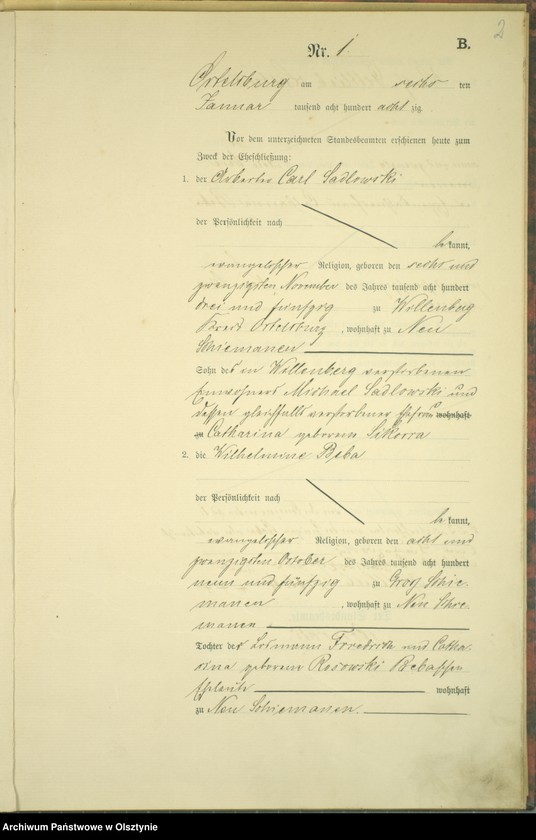 2
Nr. 1
B.
Ortelsburg am sechs ten
Januar tausend acht hundert acht zig
Vor dem unterzeichneten Standesbeamten erschienen heute zum
Zweck der Eheschließung:
1. der Arbeiter Carl Sadlowski
der Persönlichkeit nach
bekannt,
evangelischer Religion, geboren den sechs und
zwanzigsten November des Jahres tausend acht hundert
drei und fünfzig zu Willenberg
Kreis Ortelsburg, wohnhaft zu Neu
Schiemanen
Sohn des in Willenberg verstorbenen
Einwohners Michael Sadlowski und
dessen gleichfalls verstorbener Ehefrau wohnhaft
zu Catharina geborene Sikorra
2. die Wilhelmine Beba
der Persönlichkeit nach
bekannt,
evangelischer Religion, geboren den acht und
zwanzigsten October des Jahres tausend acht hundert
neun und fünfzig zu Groß Schie
manen, wohnhaft zu Neu Schie
manen
Tochter der Losmann Friedrich und Catha
rina geborene Rosowski Bebaschen
Eheleute wohnhaft
zu Neu Schiemanen.
Archiwum Państwowe w Olsztynie